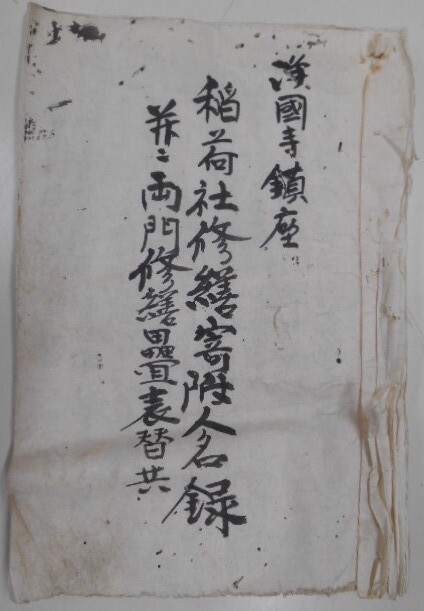 漢國寺鎮座
稲荷社修繕寄附人名録
并ニ両門修繕疊表替共